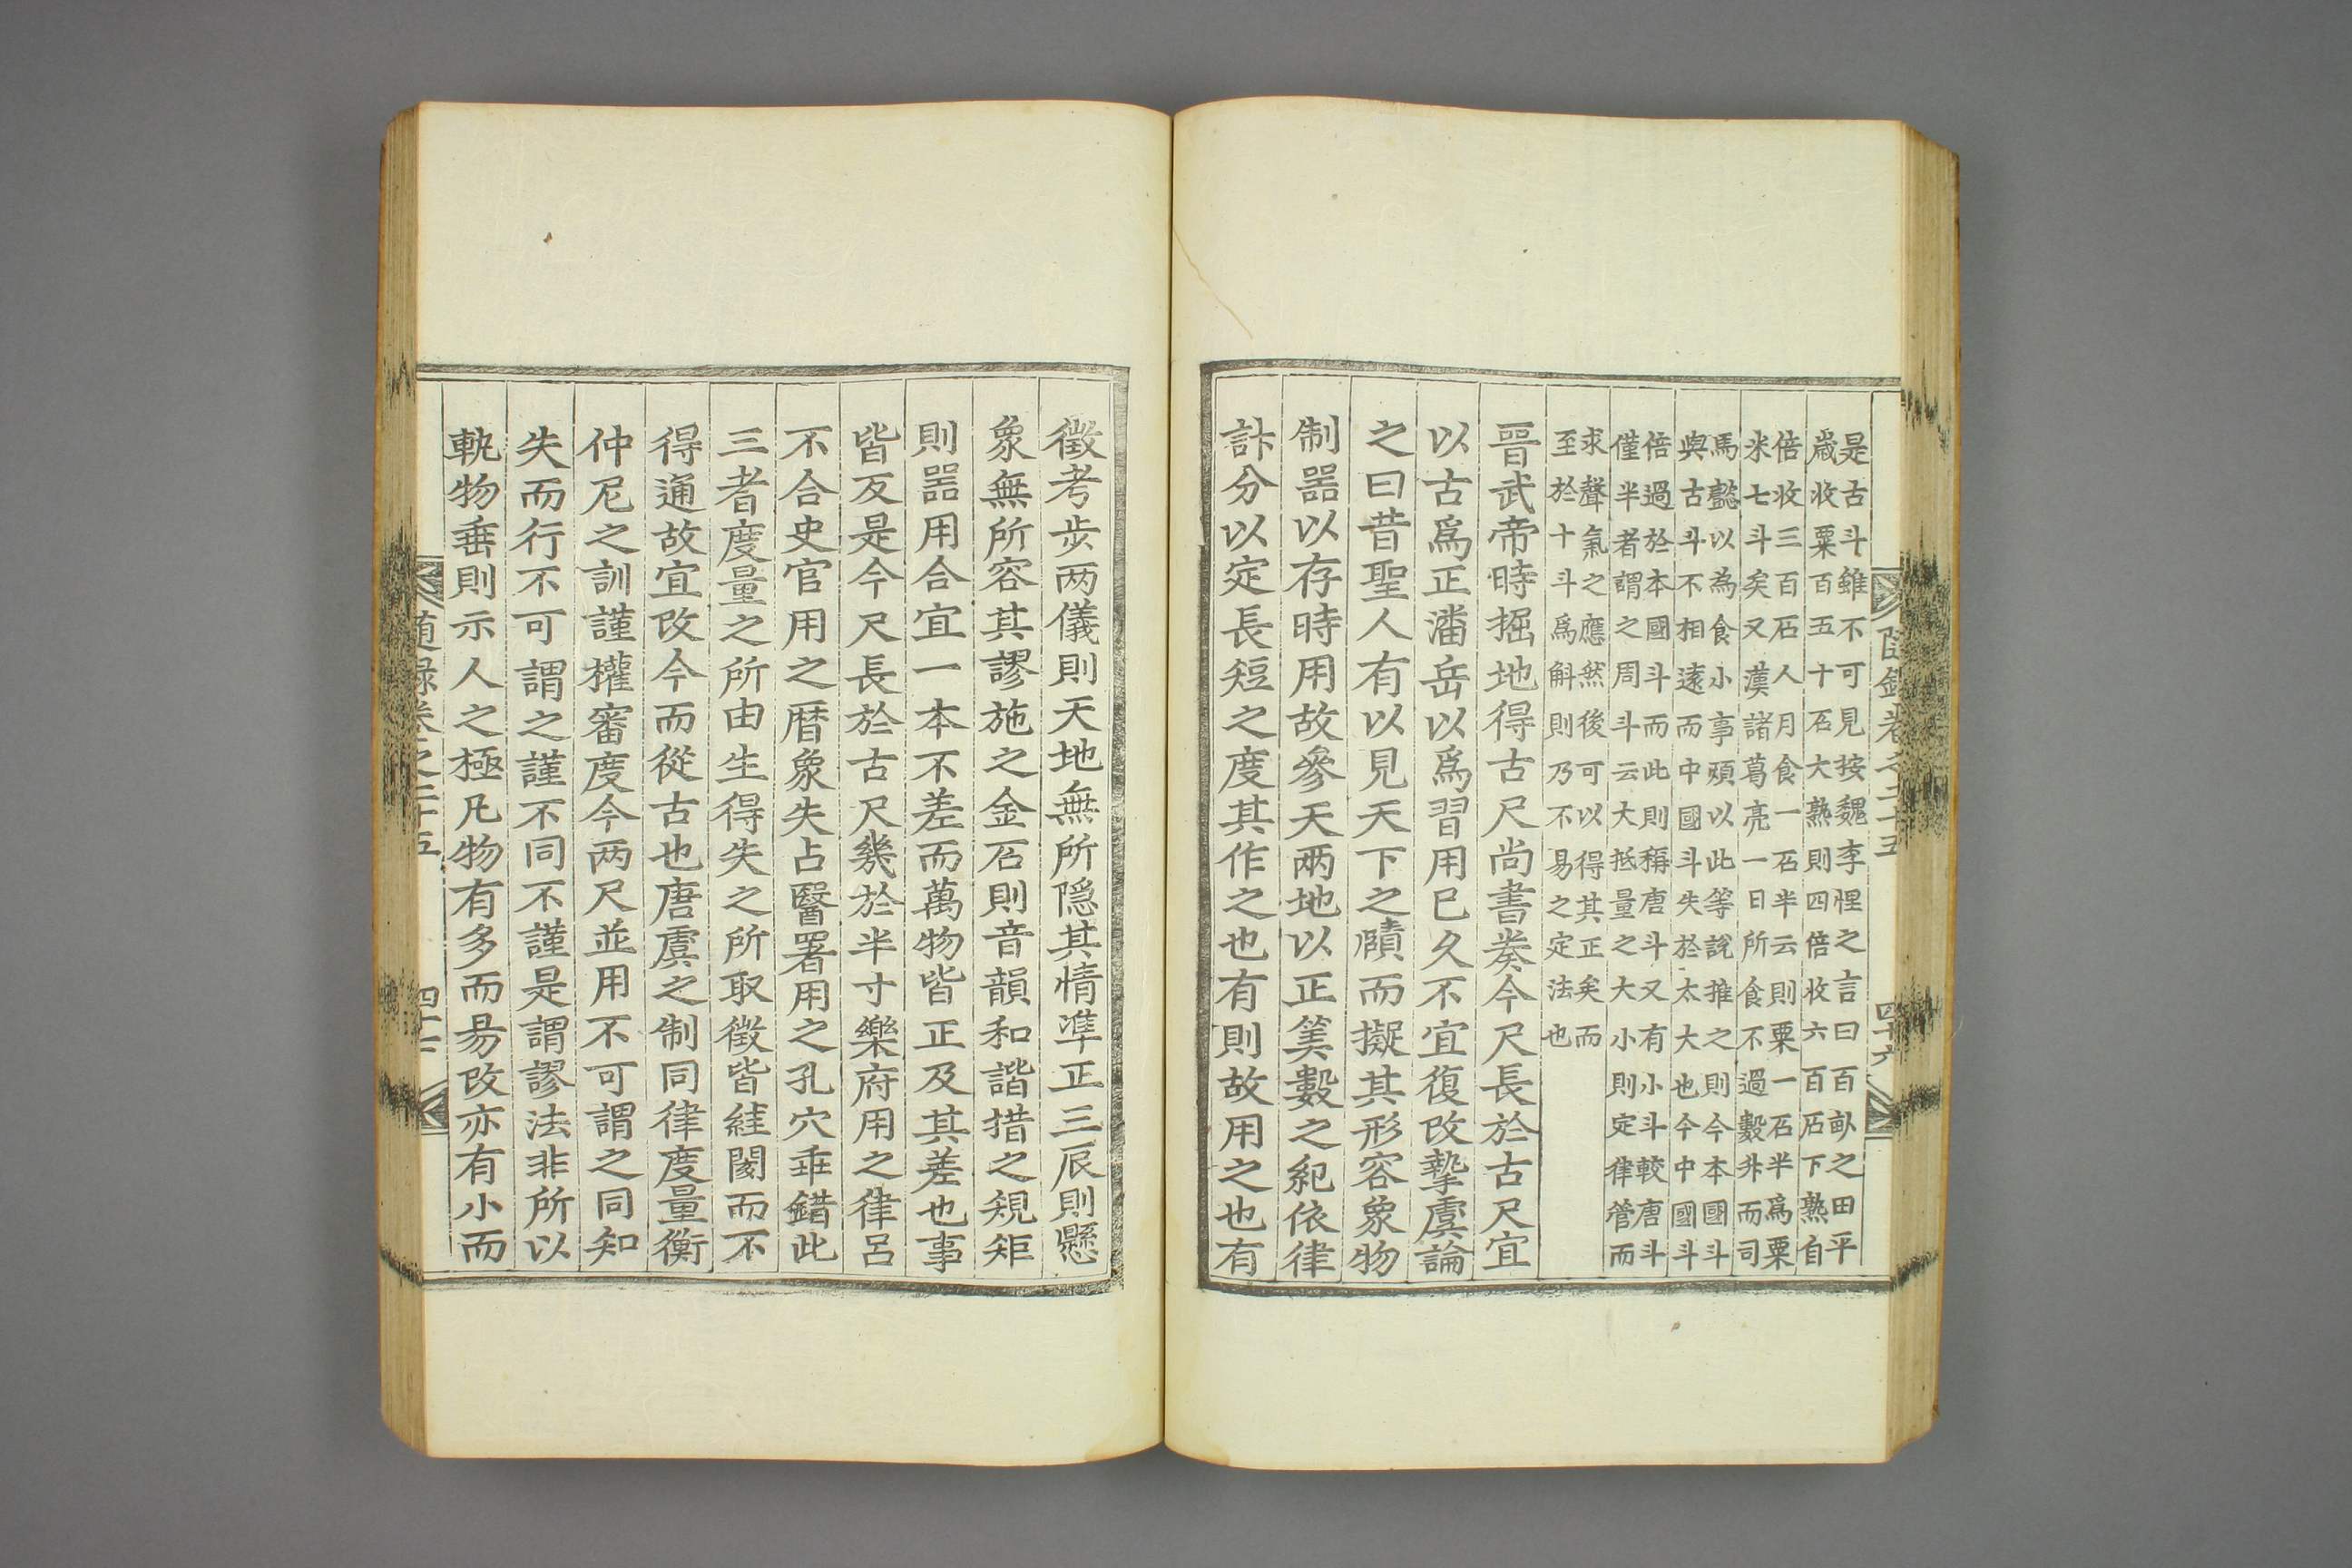 是古斗雖不可見按魏李悝之言曰百畝之田平
歲收粟百五十石大熟則四倍收六百石下熟自
倍收三百石人月食一石半云則粟一石半爲粟
米七斗矣又漢諸葛亮一日所食不過數升而司
馬懿以為食小事煩以此等說推之則今本國斗
與古斗不相遠而中國斗失於太大也今中國斗
倍過於本國斗而此則稱唐斗又有小斗較唐斗
僅半者謂之周斗云大抵量之大小則定律管而
求聲氣之應然後可以得其正矣而
至於十斗爲斛則乃不易之定法也
晋武帝時掘地得古尺尚書奏今尺長於古尺宜
以古爲正潘岳以爲習用已久不宜復改摯虞論
之曰昔聖人有以見天下之賾而擬其形容象物
制噐以存時用故參天兩地以正筭數之紀依律
計分以定長短之度其作之也有則故用之也有
隨錄卷之二十五 四十六
徵考步两儀則天地無所隱其情準正三辰則懸
象無所容其謬施之金石則音韻和諧措之規矩
則噐用合宜一本不差而萬物皆正及其差也事
皆反是今尺長於古尺幾於半寸樂府用之律呂
不合史官用之曆象失占醫署用之孔穴乖錯此
三者度量之所由生得失之所取徵皆絓閡而不
得通故宜改今而從古也唐虞之制同律度量衡
仲尼之訓謹權審度今两尺並用不可謂之同知
失而行不可謂之謹不同不謹是謂謬法非所以
軌物垂則示人之極凡物有多而易改亦有小而
隨錄卷之二十五 四十七